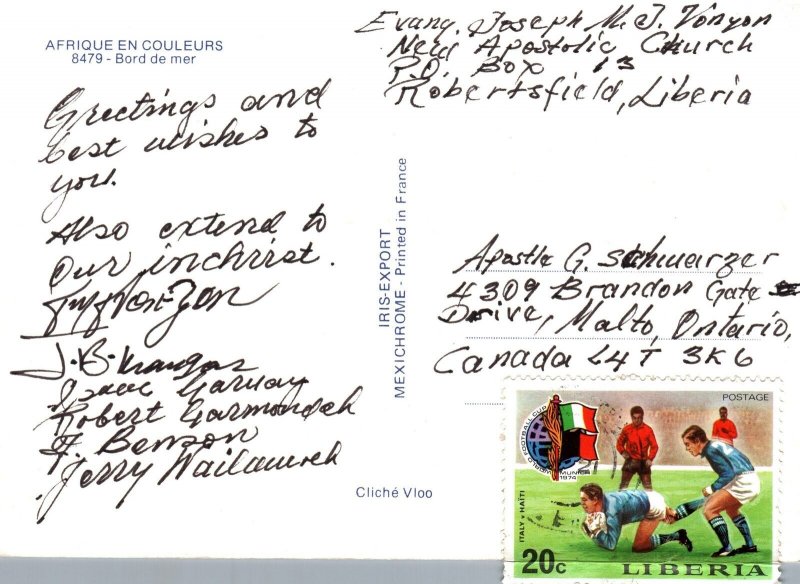 AFRIQUE EN COULEURS
8479 - Bord de mer
Greetings and
best wishes to
you.
Also extend to
Our inchrist.
J. B.
Isaac Garuay
Robert Garmondeh
F. Benson
Jerry
Cliché Vloo
IRIS-EXPORT
MEXICHROME - Printed in France
Evang. Joseph M. J. Vonyon
New Apostolic Church
P.O. Box 13
Robertsfield, Liberia
Apostle G. Schwarzer
4309 Brandon Gate
Drive, Malto, Ontario,
Canada L4T 3K6
POSTAGE
WORLD FOOTBALL CUP
MUNICH
1974
21
ITALY v HAÏTI
20c
LIBERIA